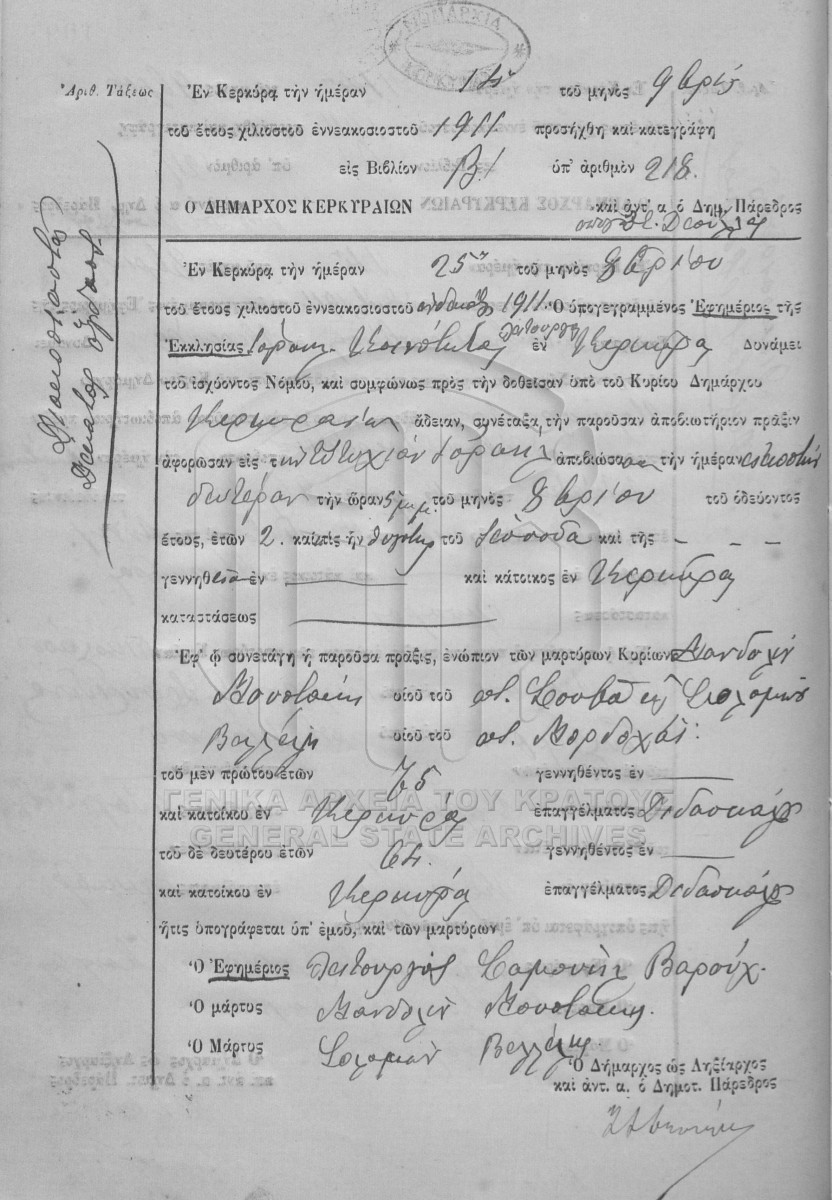 ΔΗΜΑΡΧΙΑ
ΚΕΡΚΥΡ
Ἀριθ. Τάξεως
Ἐν Κερκύρᾳ τὴν ἡμέραν 14 τοῦ μηνὸς 9βρίου
τοῦ ἔτους χιλιοστοῦ ἐννεακοσιοστοῦ 1911 προσήχθη καὶ κατεγράφη
εἰς Βιβλίον Β! ὑπ' ἀριθμὸν 218
Ὁ ΔΗΜΑΡΧΟΣ ΚΕΡΚΥΡΑΙΩΝ καὶ ἀντ' α ὁ Δημ. Πάρεδρος
Ἐν Κερκύρᾳ τὴν ἡμέραν 25 τοῦ μηνὸς 8βρίου
τοῦ ἔτους χιλιοστοῦ ἐννεακοσιοστοῦ 1911. Ὁ ὑπογεγραμμένος Ἐφημέριος τῆς
Ἐκκλησίας Ἰσραηλ. Κοινότητος λειτουργὸς ἐν Κερκύρᾳ Δυνάμει
τοῦ ἰσχύοντος Νόμου, καὶ συμφώνως πρὸς τὴν δοθεῖσαν ὑπὸ τοῦ Κυρίου Δημάρχου
Κερκυραίων ἄδειαν, συνέταξα τὴν παροῦσαν ἀποβιωτήριον πρᾶξιν
ἀφορῶσαν εἰς τὴν ἀποβιώσασαν τὴν ἡμέραν εἰκοστὴν
δευτέραν τὴν ὥραν 5 μ.μ. τοῦ μηνὸς 8βρίου τοῦ ὁδεύοντος
ἔτους, ἐτῶν 2. καὶ τις ἦν θυγάτηρ τοῦ καὶ τῆς – – –
γεννηθεῖσα ἐν καὶ κάτοικος ἐν Κερκύρᾳ
καταστάσεως
Ἐφ' ᾧ συνετάγη ἡ παροῦσα πρᾶξις, ἐνώπιον τῶν μαρτύρων Κυρίων Μανδολὶν
Μουστάκης υἱοῦ τοῦ Σολομὼν
Βελλέλης υἱοῦ τοῦ Μορδοχάϊ
τοῦ μὲν πρώτου ἐτῶν 75 γεννηθέντος ἐν
καὶ κατοίκου ἐν Κερκύρᾳ ἐπαγγέλματος Διδασκάλου
τοῦ δὲ δευτέρου ἐτῶν 64. γεννηθέντος ἐν
καὶ κατοίκου ἐν Κερκύρᾳ ἐπαγγέλματος Διδασκάλου
ἥτις ὑπογράφεται ὑπ' ἐμοῦ, καὶ τῶν μαρτύρων
Ὁ Ἐφημέριος Λειτουργὸς Σαμουὴλ Βαρούχ.
Ὁ μάρτυς Μανδολὶν Μουστάκης.
Ὁ Μάρτυς Σολομὼν Βελλέλης.
Ὁ Δήμαρχος ὡς Ληξίαρχος
καὶ ἀντ. α. ὁ Δημοτ. Πάρεδρος
ΓΕΝΙΚΑ ΑΡΧΕΙΑ ΤΟΥ ΚΡΑΤΟΥΣ
GENERAL STATE ARCHIVES